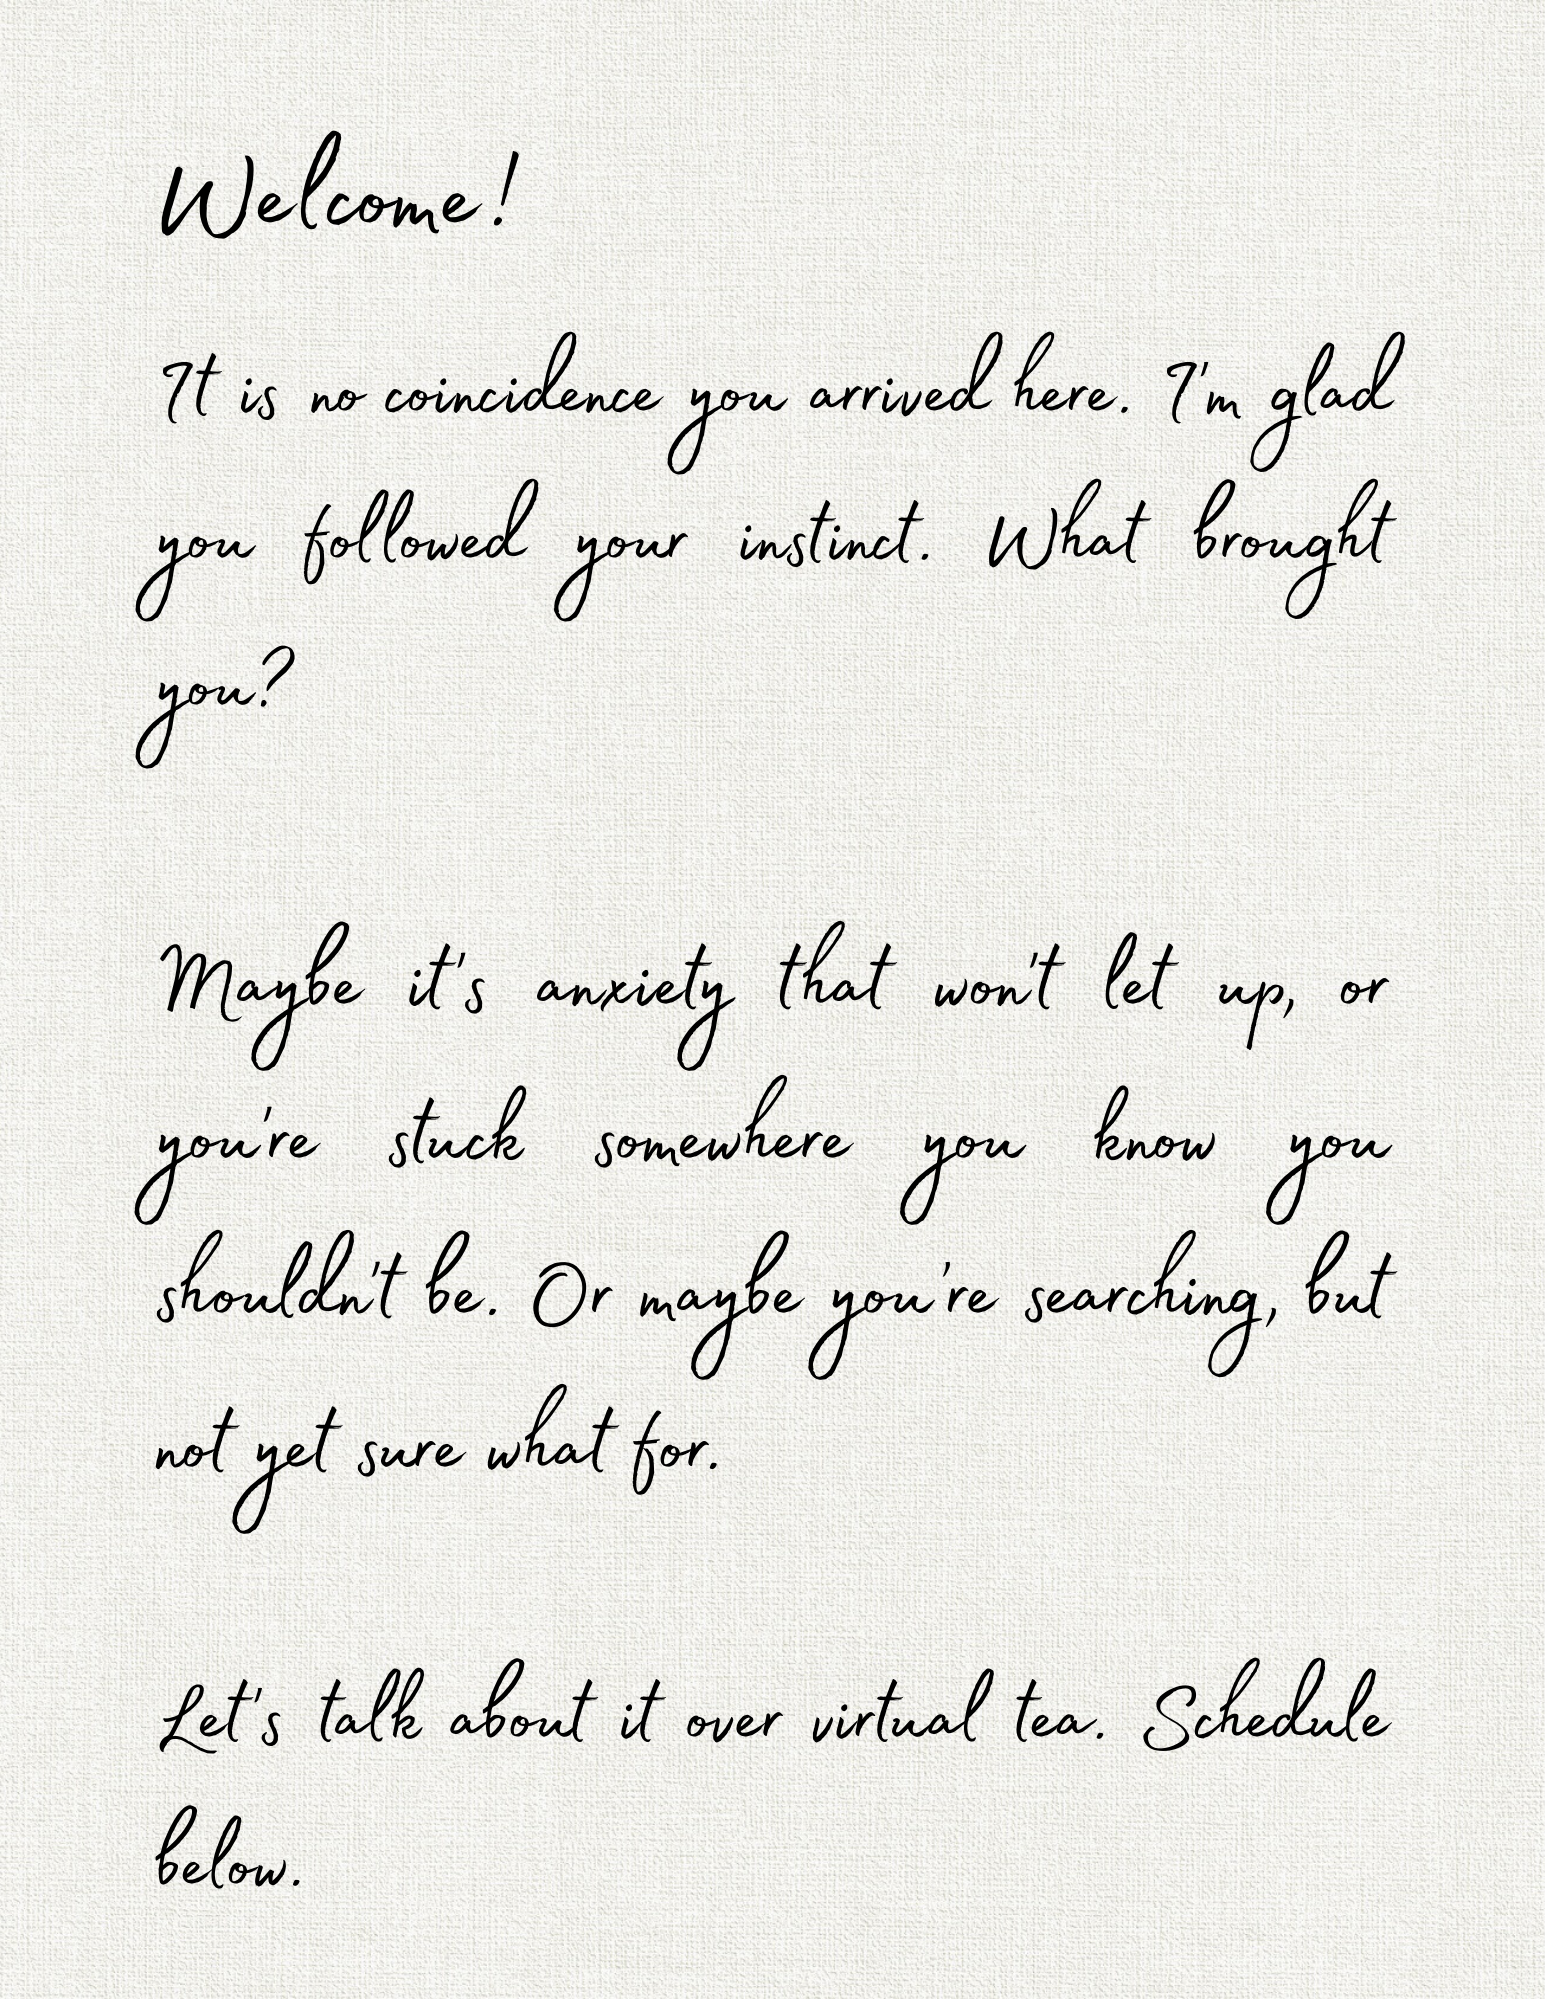 Welcome!
It is no coincidence you arrived here. I'm glad
you followed your instinct. What brought
you?
Maybe it's anxiety that won't let up, or
you're stuck somewhere you know you
shouldn't be. Or maybe you're searching, but
not yet sure what for.
Let's talk about it over virtual tea. Schedule
below.